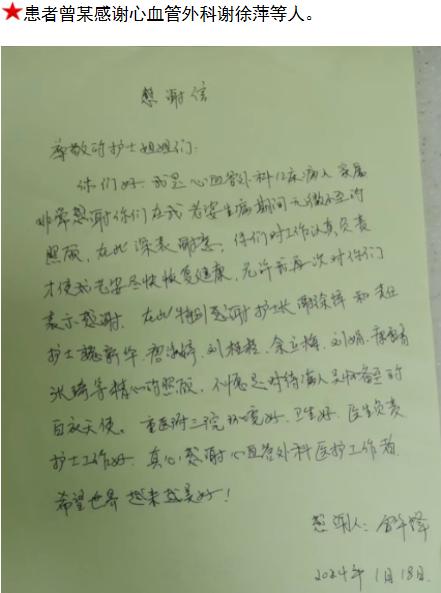 ★患者曾某感谢心血管外科谢徐萍等人。
感谢信
尊敬的护士姐姐们:
你们好 我是心血管外科12床病人 家属
非常感谢你们在我老婆生病期间无微不至的
照顾,在此深表谢意。你们对工作认真负责
才使我老婆尽快恢复健康,允许我再次对你们
表示感谢。在此特别感谢护士长谢徐萍和责任
护士 刘桂 余立梅、刘娟、
张琦等精心的照顾,你们是对待病人关怀备至的
白衣天使。重医附二院环境好、卫生好、医生负责
护士工作好。真心感谢心血管外科医护工作者
希望世界越来越美好!
感谢人:
2024年1月18日.